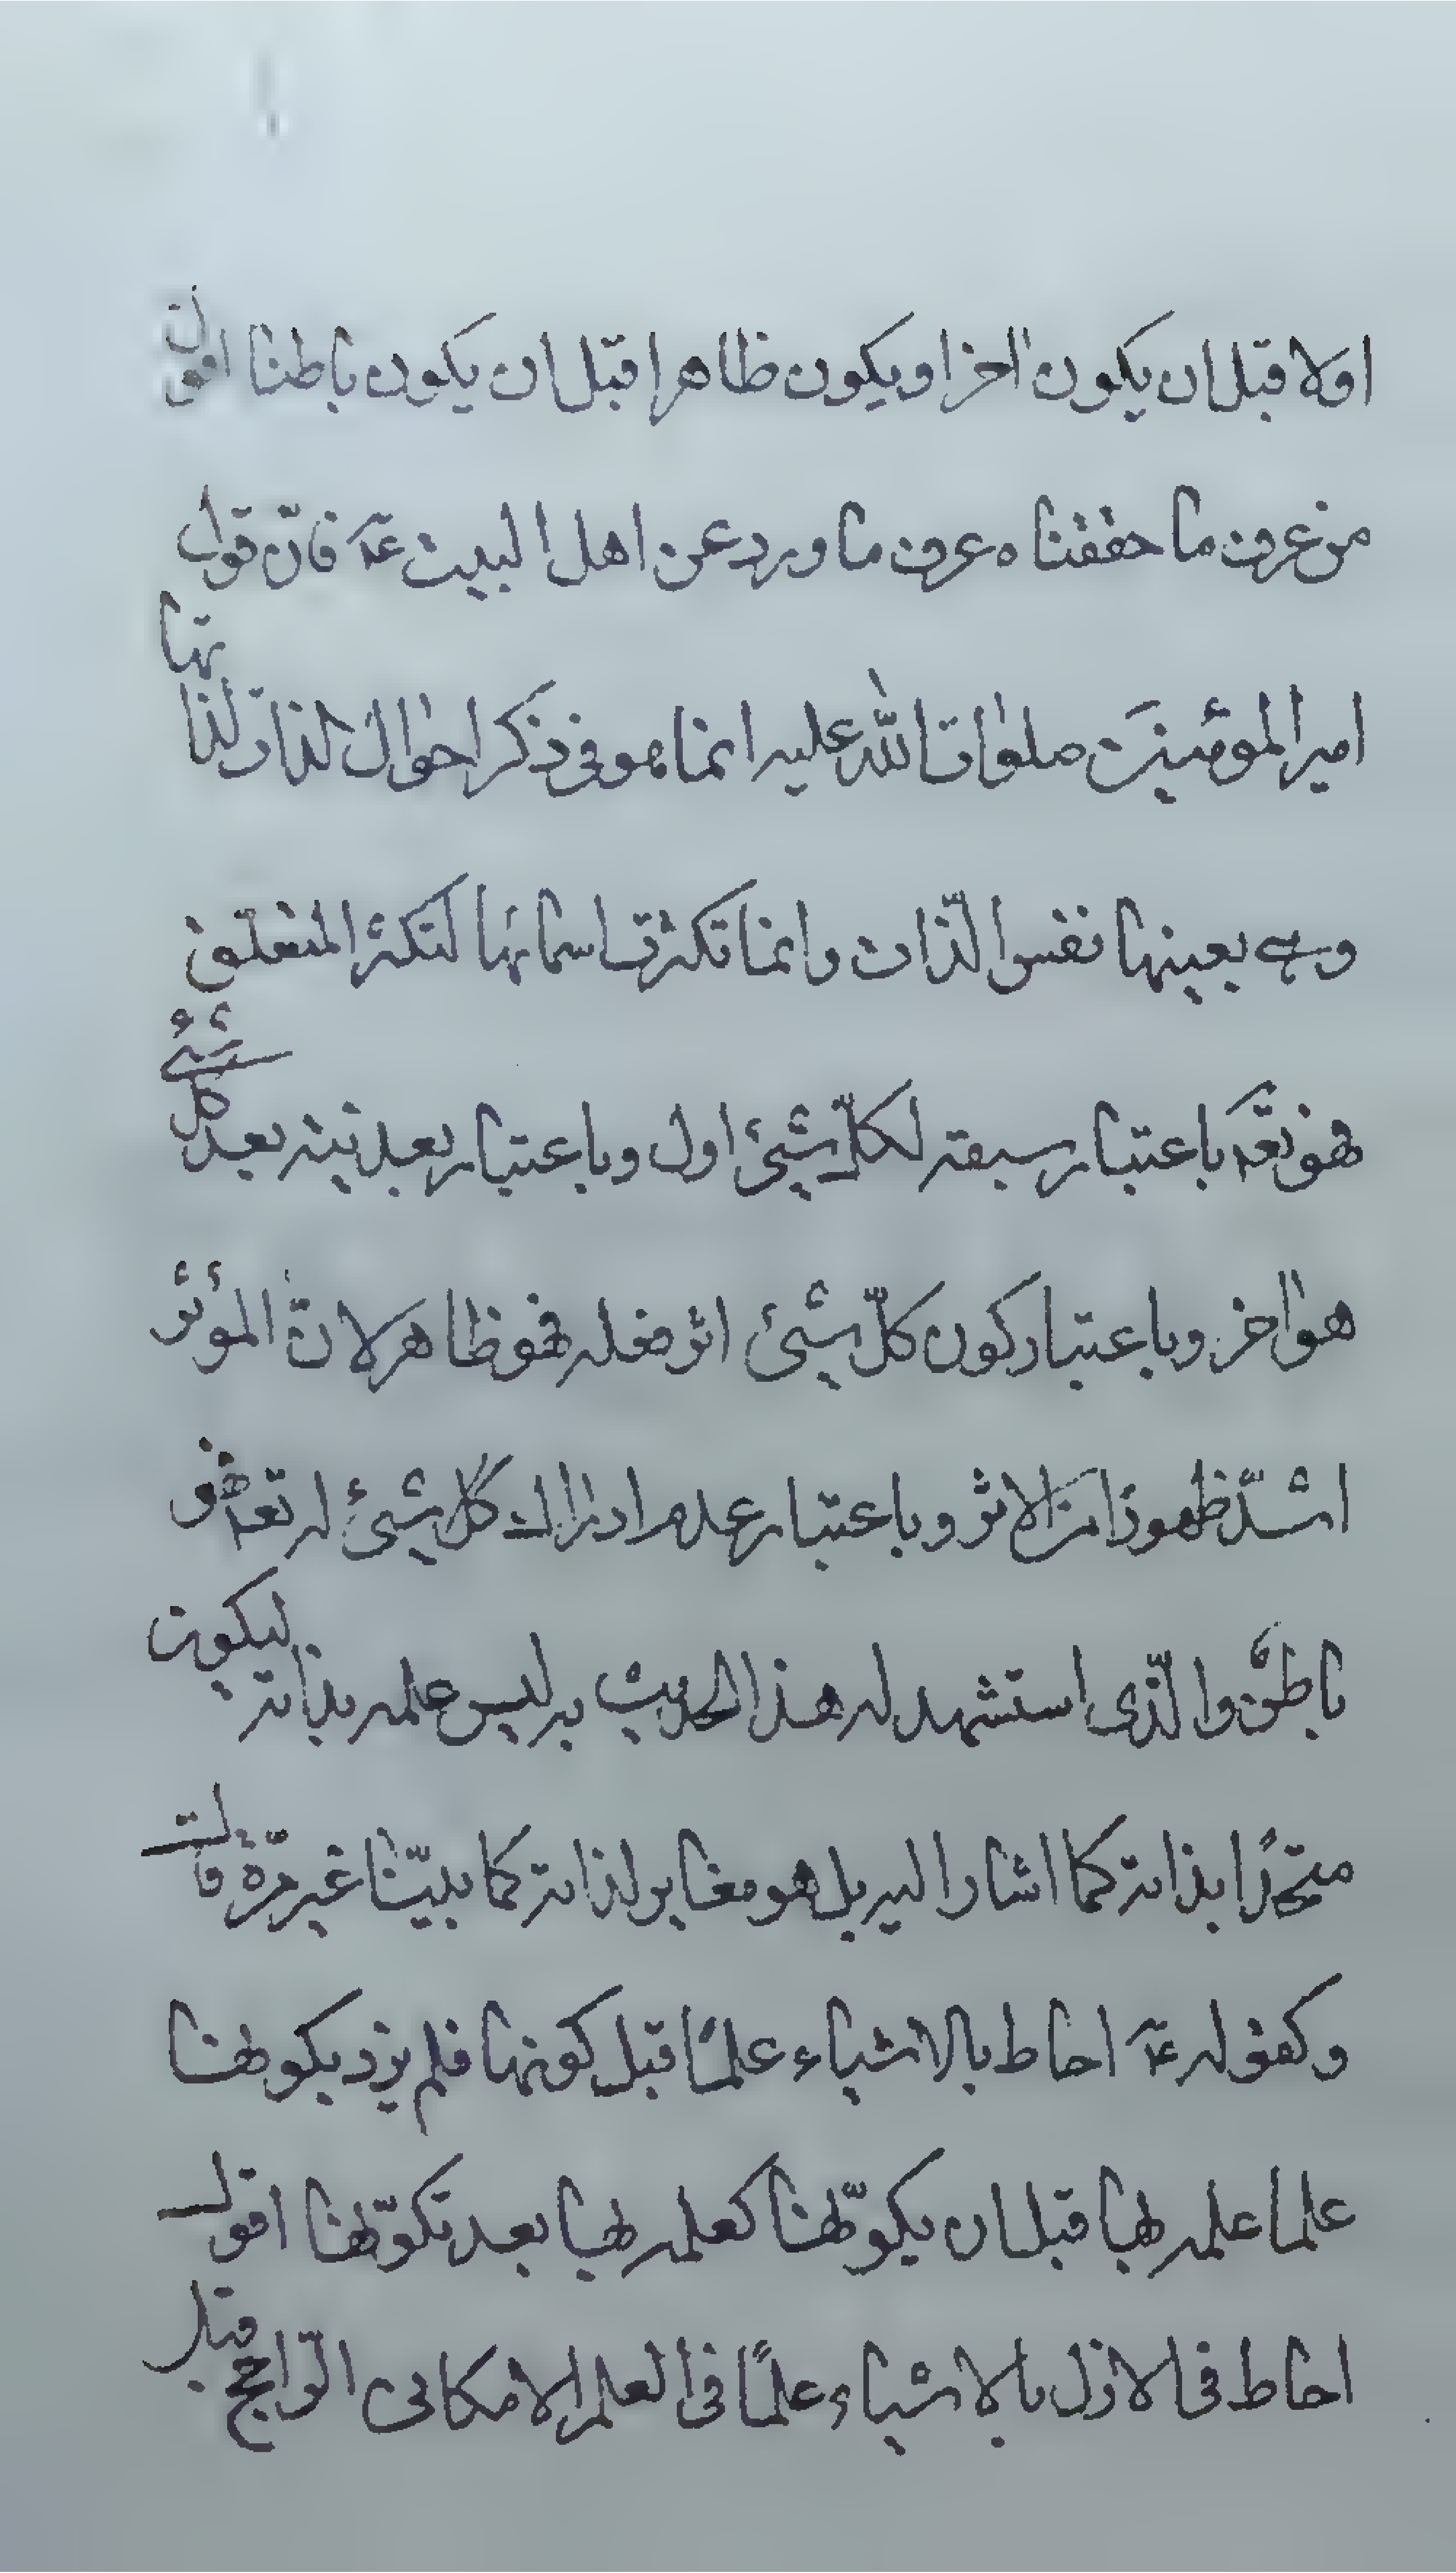 اولا قبل ان يكون اخرا ويكون ظاهرا قبل ان يكون باطنا اقول ان
من عرف ما حققناه عرف ما ورد عن اهل البيت عۤ فانّ قول
امير المؤمنين صلوات الله عليه انما هو في ذكر احوال الذات لذاتها
وهى بعينها نفس الذّات وانما تكثرت اسمائها لتكثر المتعلق
فهو تعۤه باعتبار سبقه لكلّ شيئ اول وباعتبار بعديته بعد كل شيئ
هو اخر وباعتبار كون كلّ شيئ اثر فعله فهو ظاهر لانّ المؤثر
اشدّ ظهورًا من الاثر وباعتبار عدم ادراك كل شيئ له تعه فهو
باطن والّذى استشهد له هذا الحديث به ليس علمه بذاته ليكون
متحدًا بذاته كما اشار اليه بل هو مغاير لذاته كما بيّنا غير مرّة قالت
وكقوله عۤ احاط بالاشياء علمًا قبل كونها فلم يزدد بكونها
علما علمه بها قبل ان يكوّنها كعلمه بها بعد تكوّنها اقول
احاط في الازل بالاشياء علمًا في العلم الامكانى الرّاجح قبل